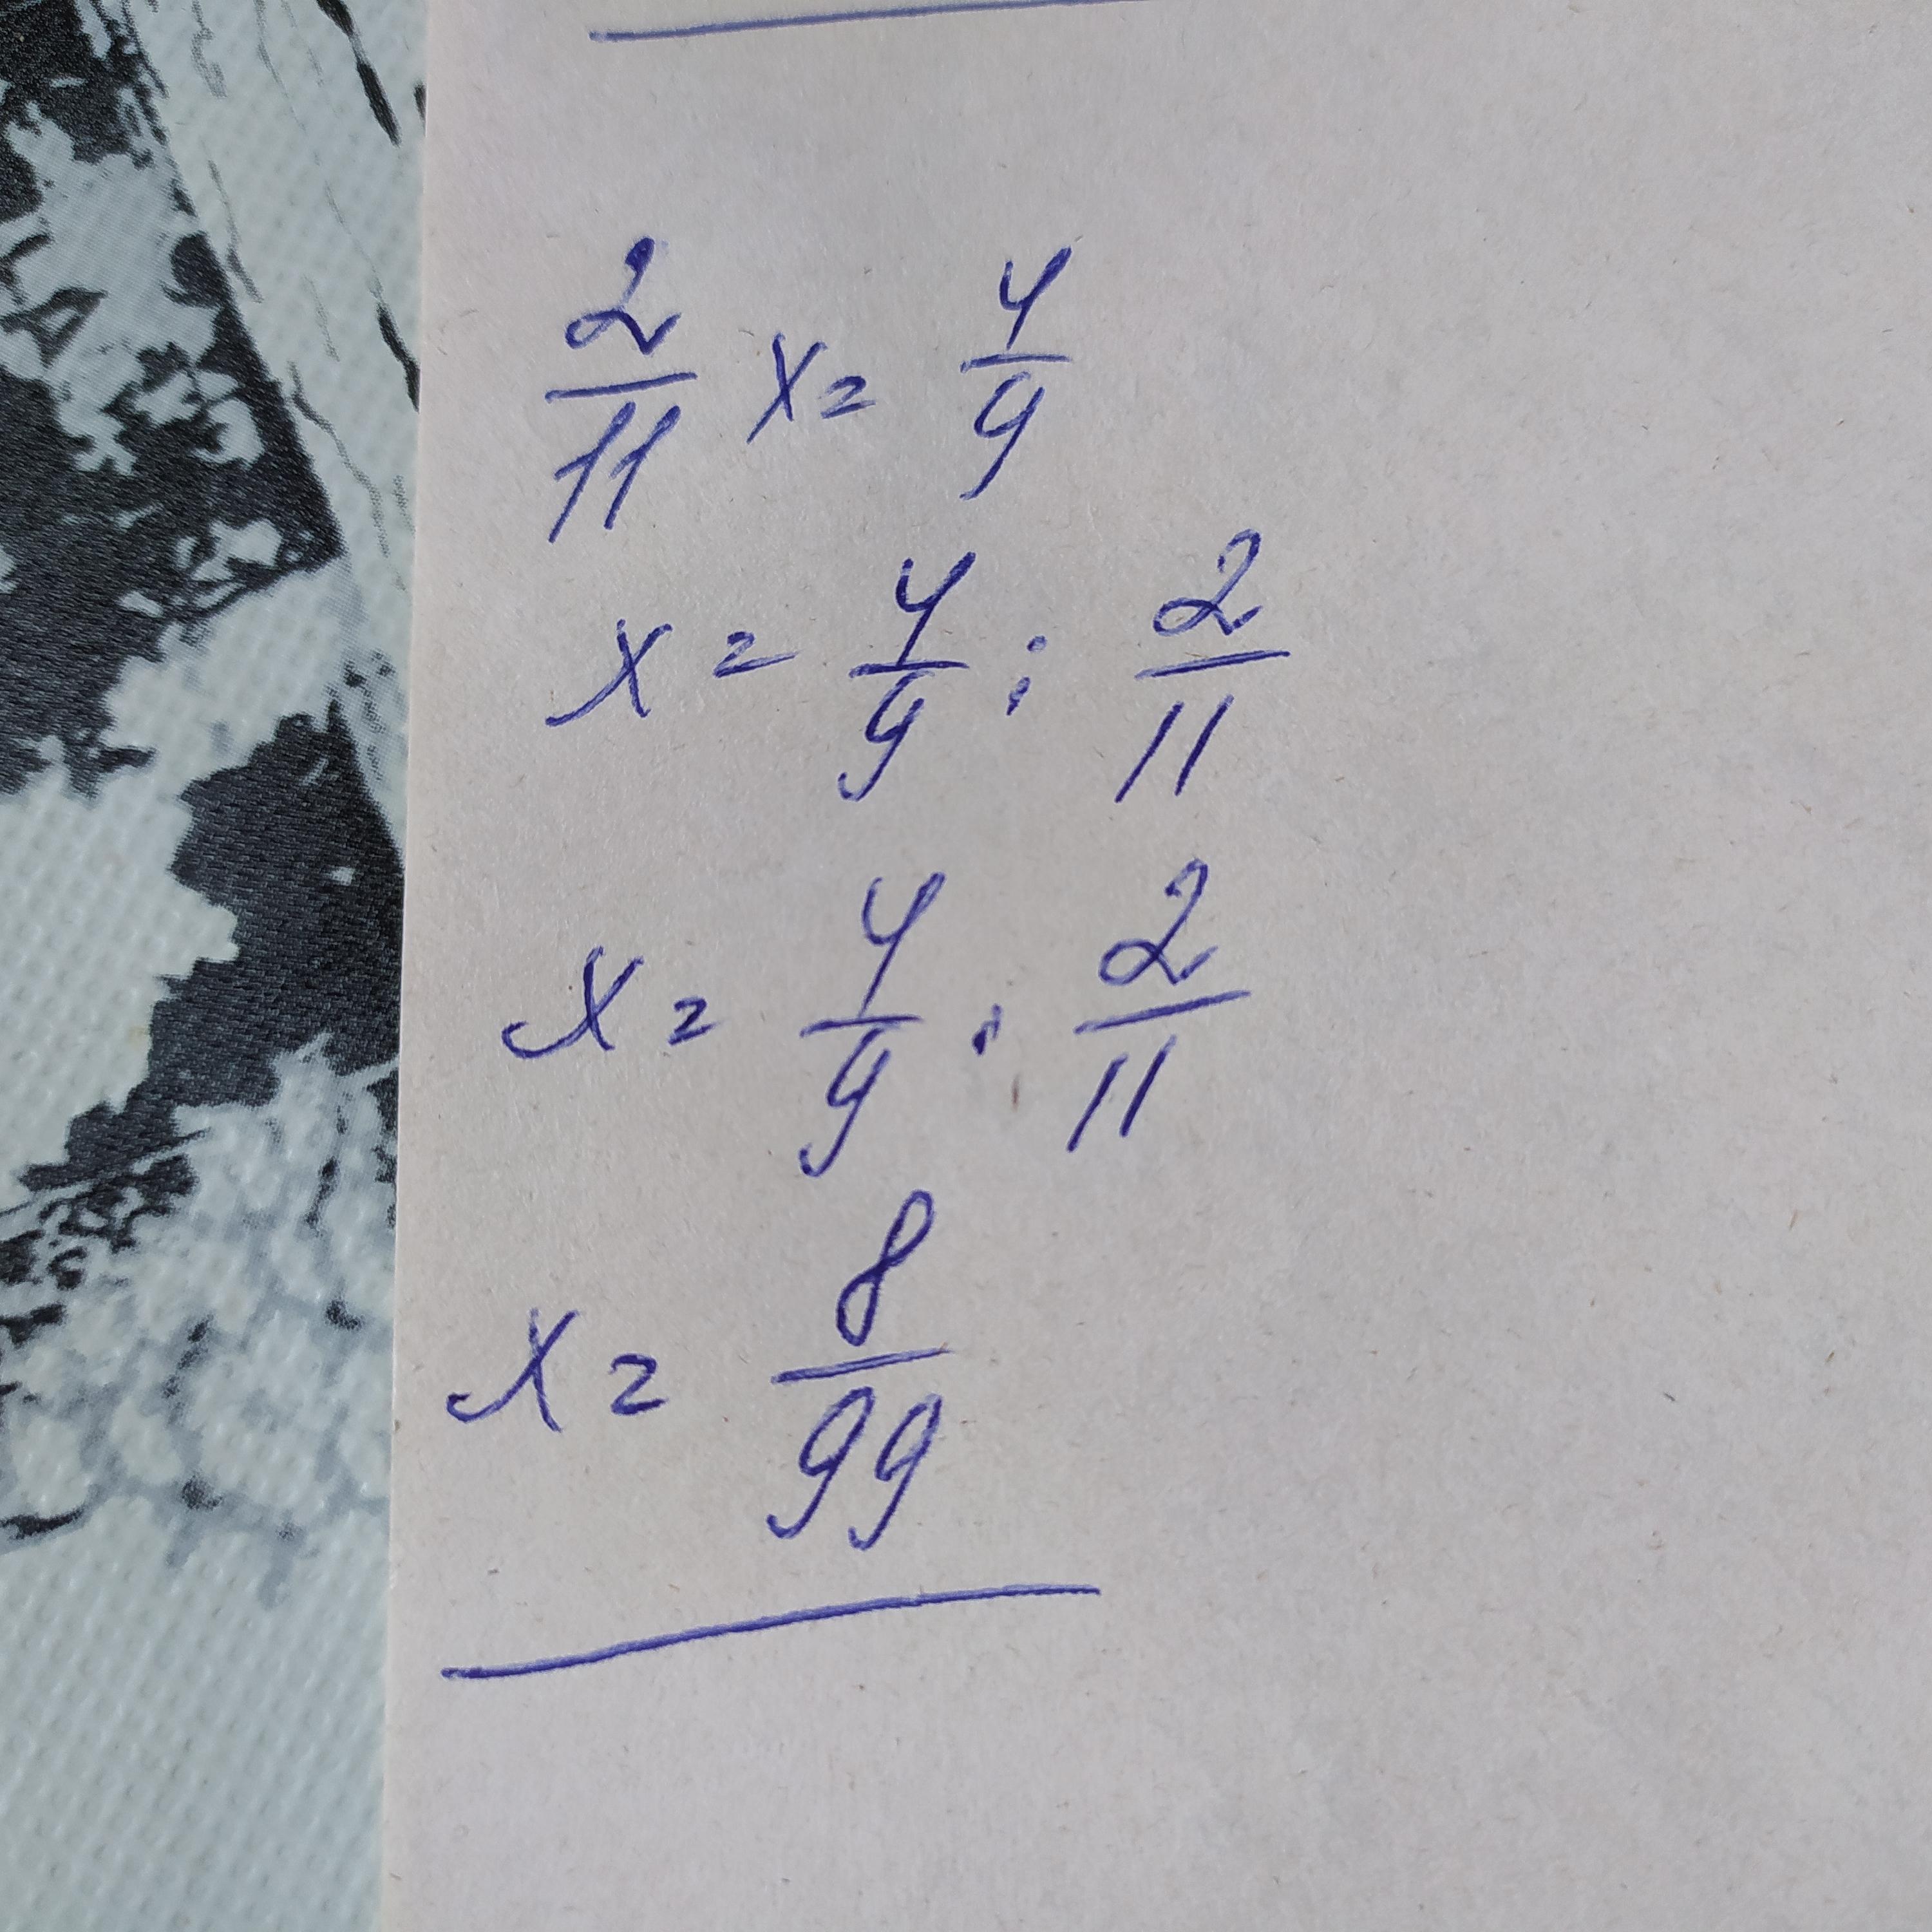 2/11 x = 4/9
x = 4/9 : 2/11
x = 4/9 · 2/11
x = 8/99